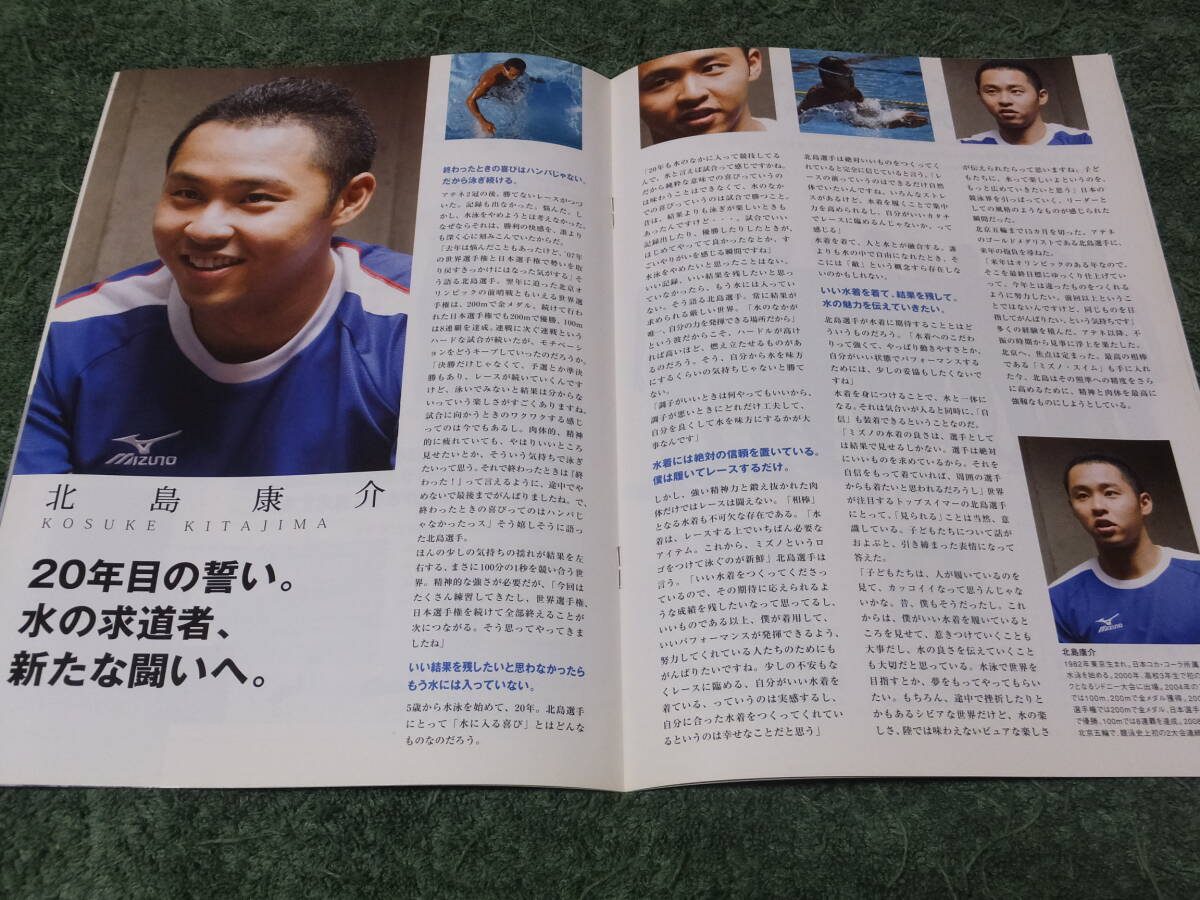 MIZUNO
北島康介
KOSUKE KITAJIMA
20年目の誓い。
水の求道者、
新たな闘いへ。
終わったときの喜びはハンパじゃない。
だから泳ぎ続ける。
アテネ2冠の後、勝てないレースがつづ
いた。記録も出なかった。悩んだ。し
かし、水泳をやめようとは考えなかった。
なぜならそれは、勝利の快感を、誰より
も深く心に刻みこんでいたからだ。
「去年は悩んだこともあったけど、'07年
の世界選手権と日本選手権で勢いを取
り戻すきっかけにはなった気がする」そ
う語る北島選手。翌年に迫った北京オ
リンピックの前哨戦ともいえる世界選
手権は、200mで金メダル。続けて行わ
れた日本選手権でも200mで優勝、100m
は8連覇を達成。連戦に次ぐ連戦という
ハードな試合が続いたが、モチベーシ
ョンをどうキープしていったのだろうか。
「決勝だけじゃなくて、予選とか準決
勝もあり、レースが続いていくんです
けど、泳いでみないと結果は分からな
いっていう楽しさがすごくありますね。
試合に向かうときのワクワクする感じ
ってのは今でもあるし。肉体的、精神
的に疲れていても、やはりいいところ
見せたいとか、そういう気持ちで泳ぎ
たいって思う。それで終わったときは「終
わった！」って言えるように、途中でや
めないで最後までがんばりましたね。で、
終わったときの喜びってのはハンパじ
ゃなかったっス」そう嬉しそうに語っ
た北島選手。
ほんの少しの気持ちの揺れが結果を左
右する、まさに100分の1秒を競い合う世
界。精神的な強さが必要だが、「今回は
たくさん練習してきたし、世界選手権、
日本選手権を続けて全部終えることが
次につながる。そう思ってやってきま
したね」
いい結果を残したいと思わなかったら
もう水には入っていない。
5歳から水泳を始めて、20年。北島選手
にとって「水に入る喜び」とはどんな
ものなのだろう。
「20年も水のなかに入って競技してる
んで、水と言えば試合って感じですかね。
だから純粋な意味での喜びっていうの
は味わうことはできなくて、水のなか
での喜びっていうのは試合で勝つこと。
昔は、結果よりも泳ぎが楽しいときも
あったんですけど・・・。試合でいい
記録出したり、優勝したりしたときが、
はじめてやってて良かったなとか、す
ごいやりがいを感じる瞬間ですね」
水泳をやめたいと思ったことはない。
いい記録、いい結果を残したいと思っ
ていなかったら、もう水には入ってい
ない。そう語る北島選手。常に結果が
求められる厳しい世界。「水のなかが
唯一、自分の力を発揮できる場所だから」
という彼だからこそ、ハードルが高け
れば高いほど、燃え立たせるものがあ
るのだろう。そう、自分から水を味方
にするくらいの気持ちじゃないと勝て
「調子がいいときは何やってもいいから、
調子が悪いときにどれだけ工夫して、
自分を良くして水を味方にするかが大
事なんです」
水着には絶対の信頼を置いている。
僕は履いてレースするだけ。
しかし、強い精神力と鍛え抜かれた肉
体だけではレースは闘えない。「相棒」
となる水着も不可欠な存在である。「水
着は、レースする上でいちばん必要な
アイテム。これから、ミズノというロ
ゴをつけて泳ぐのが新鮮」北島選手は
言う。「いい水着をつくってくださっ
ているので、その期待に応えられるよ
うな成績を残したいなって思ってるし、
いいものである以上、僕が着用して、
いいパフォーマンスが発揮できるよう、
努力してくれている人たちのためにも
がんばりたいですね。少しの不安もな
くレースに臨める、自分がいい水着を
着ている、っていうのは実感するし、
自分に合った水着をつくってくれてい
るというのは幸せなことだと思う」
北島選手は絶対いいものをつくってく
れていると完全に信じていると言う。「レ
ースの前っていうのはできるだけ自然
体でいたいんですね。いろんなストレ
スがあるけど、水着を履くことで集中
力を高められるし、自分がいいカタチ
でレースに臨めるんじゃないか、って
感じる」
水着を着て、人と水とが融合する。誰
よりも水の中で自由になれたとき、そ
こには「敵」という概念すら存在しな
いのかもしれない。
いい水着を着て、結果を残して。
水の魅力を伝えていきたい。
北島選手が水着に期待することとはど
ういうものだろう。「水着へのこだわ
りって強くて、やっぱり動きやすさとか、
自分がいい状態でパフォーマンスする
ためには、少しの妥協もしたくないで
すね」
水着を身につけることで、水と一体に
なる。それは気合いが入ると同時に、「自
信」も装着できるということなのだ。
「ミズノの水着の良さは、選手として
は結果で見せるしかない。選手は絶対
にいいものを求めているから。それを
自信をもって着ていれば、周囲の選手
からも着たいと思われるだろうし」世界
が注目するトップスイマーの北島選手
にとって、「見られる」ことは当然、意
識している。子どもたちについて話が
およぶと、引き締まった表情になって
答えた。
「子どもたちは、人が履いているのを
見て、カッコイイなって思うんじゃな
いかな。昔、僕もそうだったし。これ
からは、僕がいい水着を履いていると
ころを見せて、惹きつけていくことも
大事だし、水の良さを伝えていくこと
も大切だと思っている。水泳で世界を
目指すとか、夢をもってやってもらい
たい。もちろん、途中で挫折したりと
かもあるシビアな世界だけど、水の楽
しさ、陸では味わえないピュアな楽しさ
が伝えられたらって思いますね。子ど
もたちに、水って楽しいよというのを、
もっと広めていきたいと思う」日本の
競泳界を引っぱっていく、リーダーと
しての風格のようなものが感じられた
瞬間だった。
北京五輪まで15カ月を切った。アテネ
のゴールドメダリストである北島選手に、
来年の抱負を尋ねた。
「来年はオリンピックのある年なので、
そこを最終目標にゆっくり仕上げてい
って、今年とは違ったものをつくれる
ように努力したい。前回以上というこ
とではないんですけど、同じものを目
指してがんばりたい、という気持ちです」
多くの経験を積んだ。アテネ以降、不
振の時期から見事に浮上を果たした。
北京へ。焦点は定まった。最高の相棒
である「ミズノ・スイム」も手に入れ
た今、北島はその照準への精度をさら
に高めるために、精神と肉体を最高に
強靱なものにしようとしている。
MIZUNO
北島康介
1982年東京生まれ。日本コカ・コーラ所属
水泳を始める。2000年、高校3年生で初の
クとなるシドニー大会に出場。2004年の
では100m、200mで金メダル獲得。200
選手権では200mで金メダル、日本選手
で優勝、100mでは8連覇を達成。2008
北京五輪で、競泳史上初の2大会連続